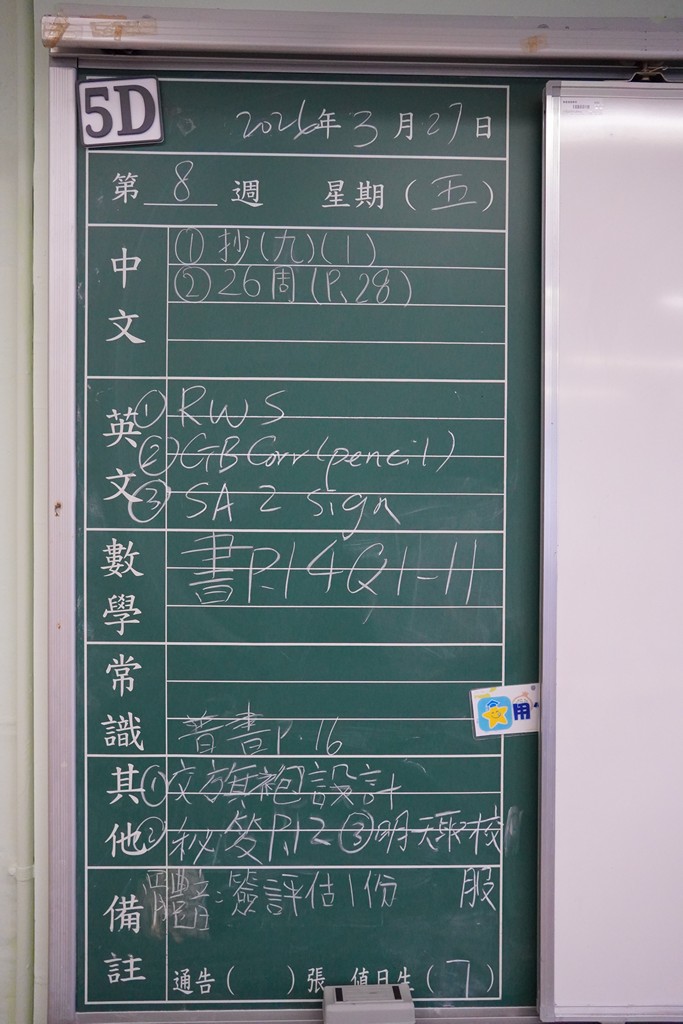 5D
2026年3月27日
第 8 週 星期(五)
中文
①抄(九)(1)
②26周(P.28)
英文
①RWS
②GB Corr(pencil)
③SA 2 sign
數學
書P.14Q1-11
常識
書P.16
其他
①交旗袍設計
②秘簽P.12 ③明天緊校
服
備註
體音:簽評估1份
通告( )張 值日生(7)
用